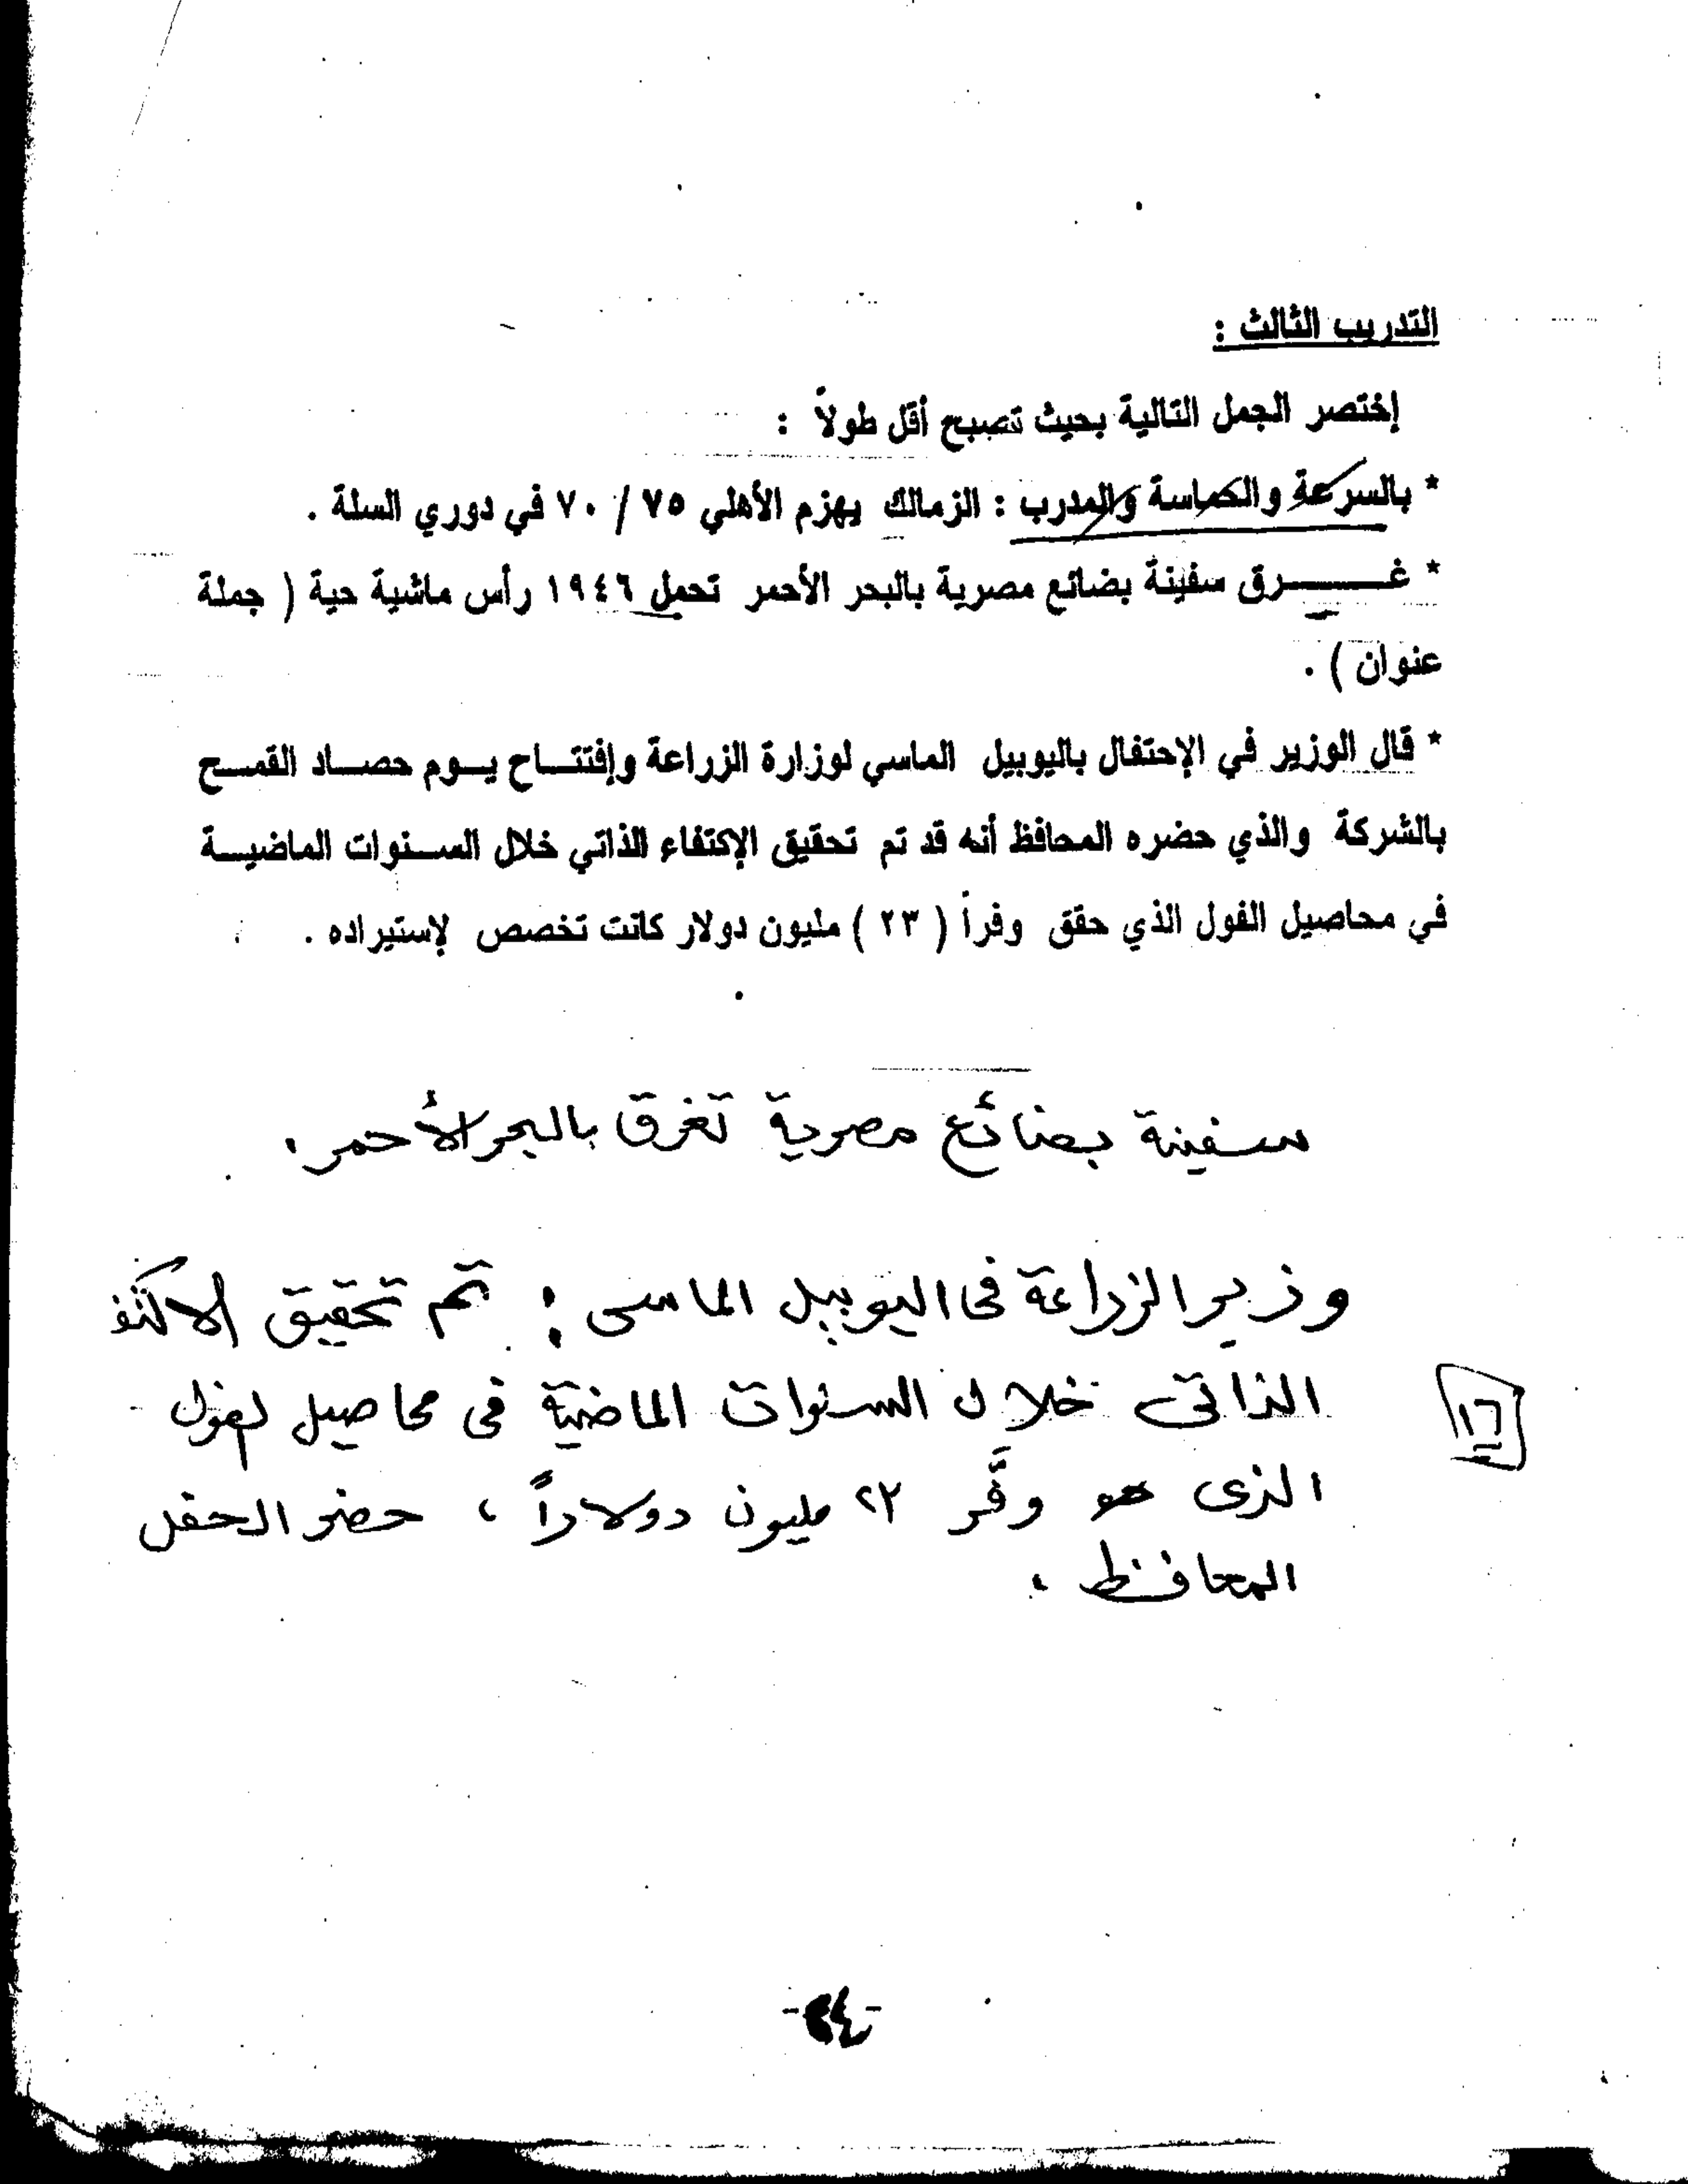 التدريب الثالث :
إختصر الجمل التالية بحيث تصبح أقل طولاً :
* بالسرعة والحماسة والمدرب : الزمالك يهزم الأهلي ٧٥ / ٧٠ في دوري السلة .
* غـــــرق سفينة بضائع مصرية بالبحر الأحمر تحمل ١٩٤٦ رأس ماشية حية ( جملة
عنوان ) .
* قال الوزير في الإحتفال باليوبيل الماسي لوزارة الزراعة وإفتتـــاح يـــوم حصـــاد القمـــح
بالشركة والذي حضره المحافظ أنه قد تم تحقيق الإكتفاء الذاتي خلال الســنوات الماضيـــة
في محاصيل الفول الذي حقق وفراً ( ٢٣ ) مليون دولار كانت تخصص لإستيراده .
سفينة بضائع مصرية تغرق بالبحر الأحمر .
وزير الزراعة فى اليوبيل الماسى : تم تحقيق
الذاتى خلال السنوات الماضية فى محاصيل الفول
١٦
الذى وفَّر ٢٣ مليون دولاراً ، حضر الحفل
المحافظ .